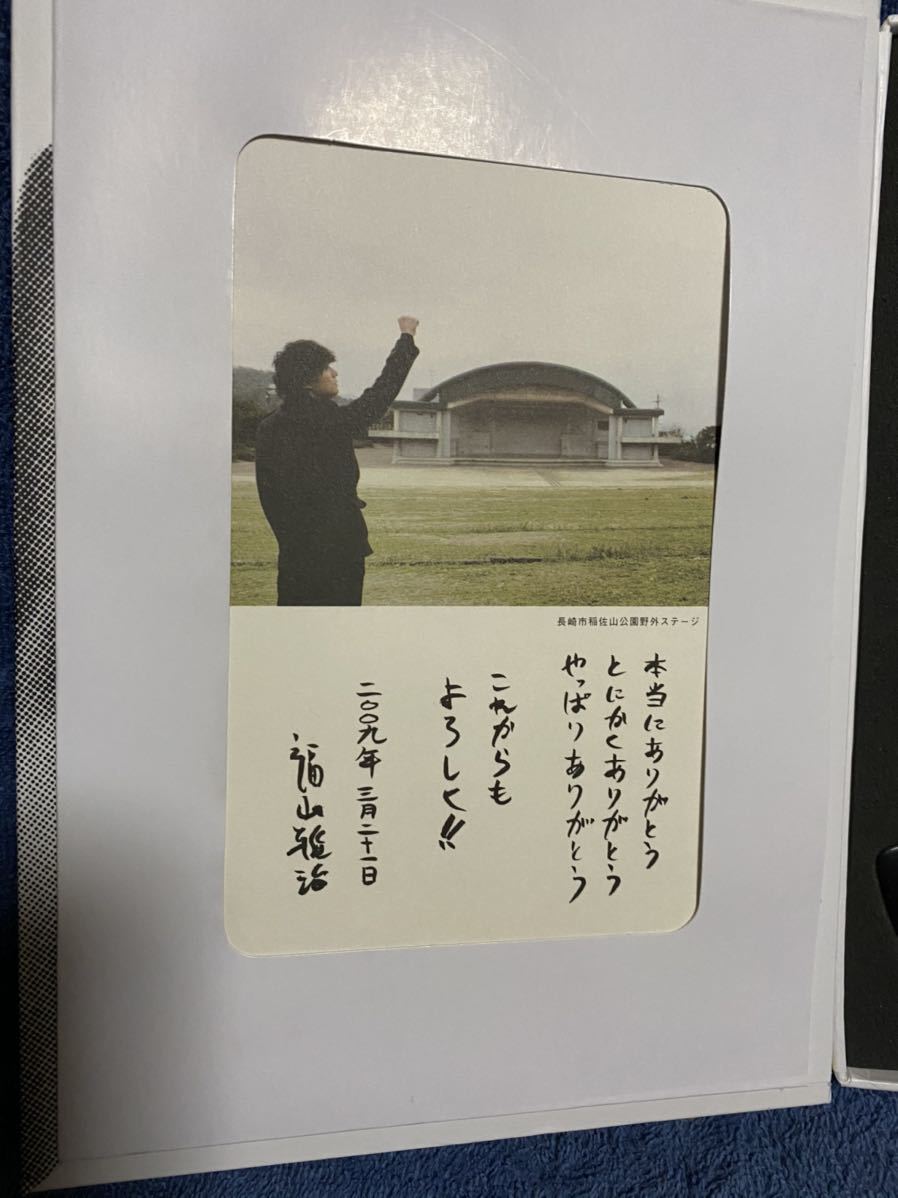 長崎市稲佐山公園野外ステージ
本当にありがとう
とにかくありがとう
やっぱりありがとう
これからも
よろしく!!
二〇〇九年 三月二十一日
福山雅治